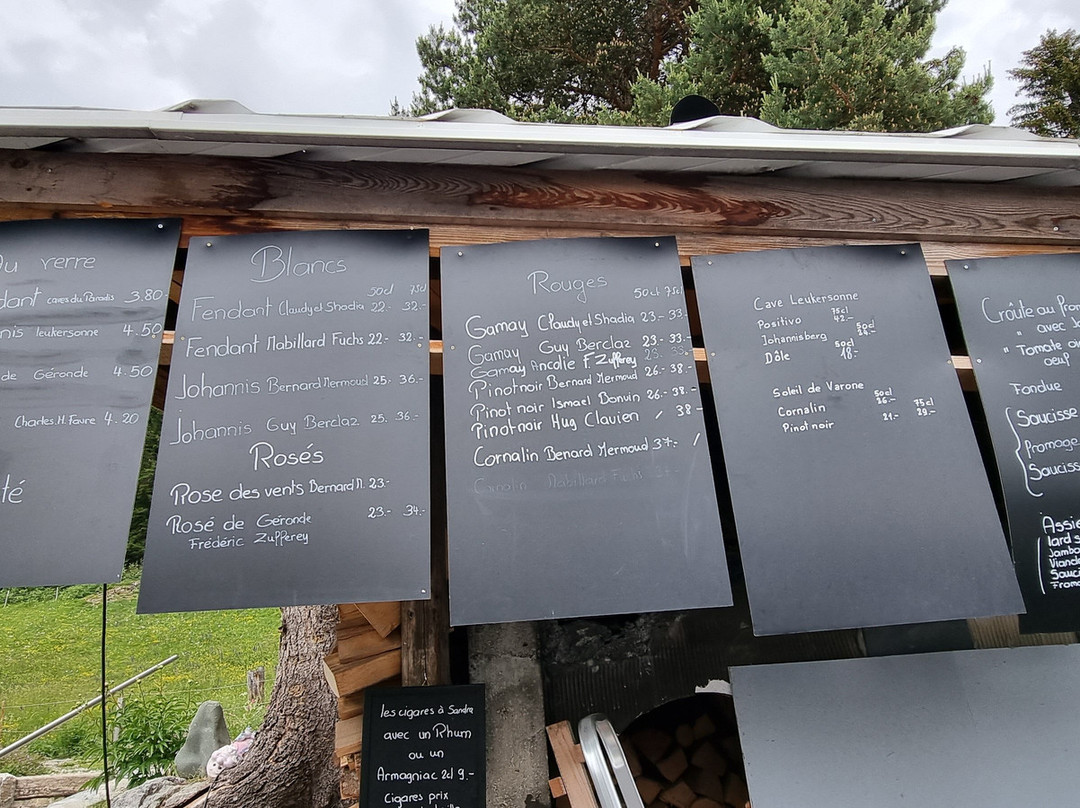 verre
caves du Paradis 3.80
leukersonne 4.50
de Géronde 4.50
Charles.H.Favre 4.20
Blancs
50cl 75cl
Fendant Claudy et Shadia 22.- 32.-
Fendant Mabillard Fuchs 22.- 32.-
Johannis Bernard Mermoud 25.- 36.-
Johannis Guy Berclaz 25.- 36.-
Rosés
Rose des vents Bernard M. 23.-
Rosé de Géronde 23.- 34.-
Frédéric Zufferey
Rouges
50cl 75cl
Gamay Claudy et Shadia 23.- 33.-
Gamay Guy Berclaz 23.- 33.-
Gamay Ancolie F. Zufferey 23.- 33.-
Pinot noir Bernard Mermoud 26.- 38.-
Pinot noir Ismael Bonvin 26.- 38.-
Pinot noir Hug Clavien / 38.-
Cornalin Benard Mermoud 37.- /
Cave Leukersonne
75cl
Positivo 42.-
50cl
Johannisberg 26.-
50cl
Dôle 18.-
Soleil de Varone
50cl 75cl
Cornalin 26.-
Pinot noir 21.- 29.-
Croûte au
" avec
" Tomate
oeuf
Fondue
Saucisse
Fromage
Sauciss
Assie
lard s
Jambo
Viande
Sauci
Froma
les cigares à Sandra
avec un Rhum
ou un
Armagnac 2cl 9.-
Cigares prix